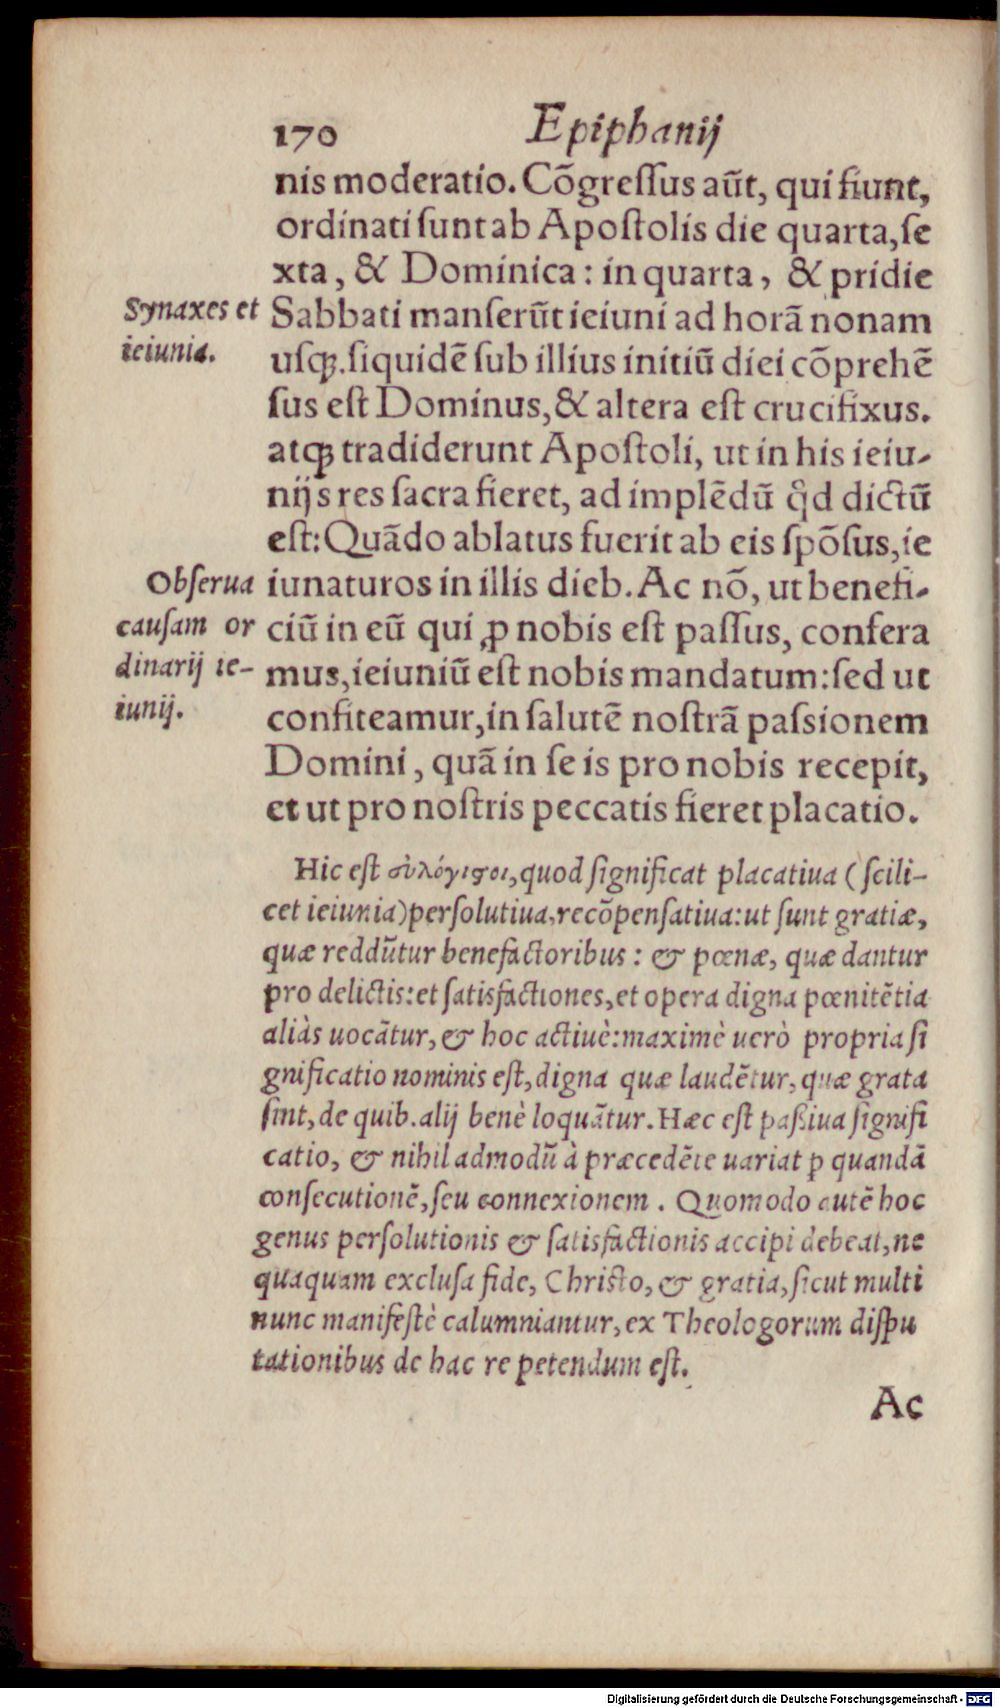 170 Epiphanij
nis moderatio. Cōgreſſus aūt, qui fiunt,
ordinati ſunt ab Apoſtolis die quarta, ſe
xta, & Dominica: in quarta, & pridie
Synaxes et
ieiunia.
Sabbati manſerūt ieiuni ad horā nonam
uſqꝫ. ſiquidē ſub illius initiū diei cōprehē
ſus eſt Dominus, & altera eſt crucifixus.
atqꝫ tradiderunt Apoſtoli, ut in his ieiu-
nijs res ſacra fieret, ad implēdū qͥd dictū
eſt: Quādo ablatus fuerit ab eis ſpōſus, ie
Obſerua
cauſam or
dinarij ie-
iunij.
iunaturos in illis dieb. Ac nō, ut benefi-
ciū in eū qui ꝓ nobis eſt paſſus, confera
mus, ieiuniū eſt nobis mandatum: ſed ut
confiteamur, in ſalutē noſtrā paſsionem
Domini, quā in ſe is pro nobis recepit,
et ut pro noſtris peccatis fieret placatio.
Hic eſt quod ſignificat placatiua (ſcili-
cet ieiunia) perſolutiua, recōpenſatiua: ut ſunt gratiæ,
quæ reddūtur benefactoribus: & pœnæ, quæ dantur
pro delictis: et ſatisfactiones, et opera digna pœnitētia
aliàs uocātur, & hoc actiuè: maximè uerò propria ſi
gnificatio nominis eſt, digna quæ laudētur, quæ grata
ſint, de quib. alij benè loquātur. Hæc eſt paßiua ſignifi
catio, & nihil admodū à præcedēte uariat ꝑ quandā
conſecutionē, ſeu connexionem. Quomodo autē hoc
genus perſolutionis & ſatisfactionis accipi debeat, ne
quaquam excluſa fide, Chriſto, & gratia, ſicut multi
nunc manifeſtè calumniantur, ex Theologorum diſpu
tationibus de hac re petendum eſt.
Ac
Digitalisierung gefördert durch die Deutsche Forschungsgemeinschaft - DFG